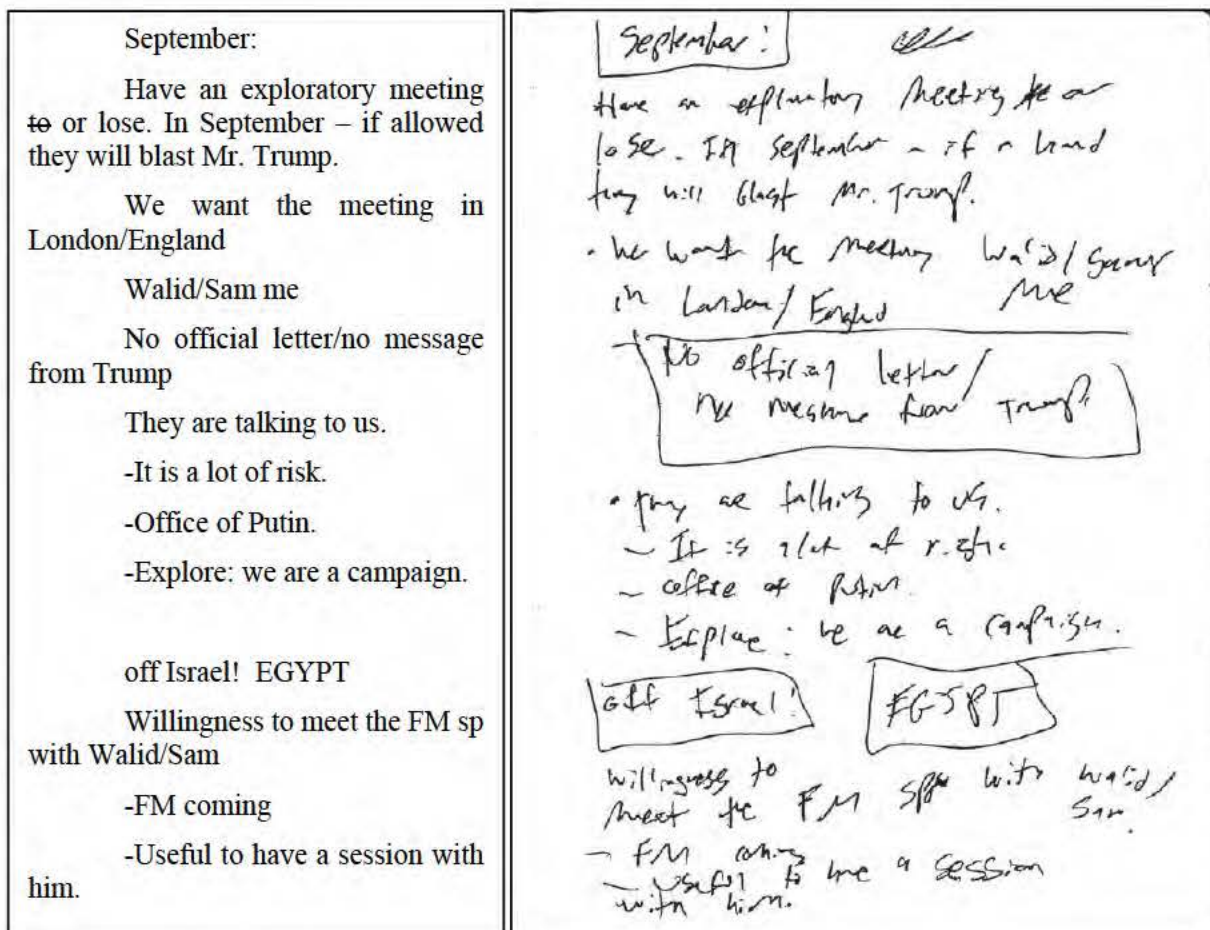 September:
Have an exploratory meeting
to or lose. In September – if allowed
they will blast Mr. Trump.
We want the meeting in
London/England
Walid/Sam me
No official letter/no message
from Trump
They are talking to us.
-It is a lot of risk.
-Office of Putin.
-Explore: we are a campaign.
off Israel! EGYPT
Willingness to meet the FM sp
with Walid/Sam
-FM coming
-Useful to have a session with
him.
September:
Have an exploratory meeting to or
lose. In September - if allowed
they will blast Mr. Trump.
• We want the meeting Walid/Sam
in London/England me
No official letter/
no message from Trump
• They are talking to us.
- It is a lot of risk
- office of Putin.
- Explore: we are a campaign.
off Israel! EGYPT
willingness to
meet the FM sp with Walid/
Sam.
- FM coming
- useful to have a session
with him.